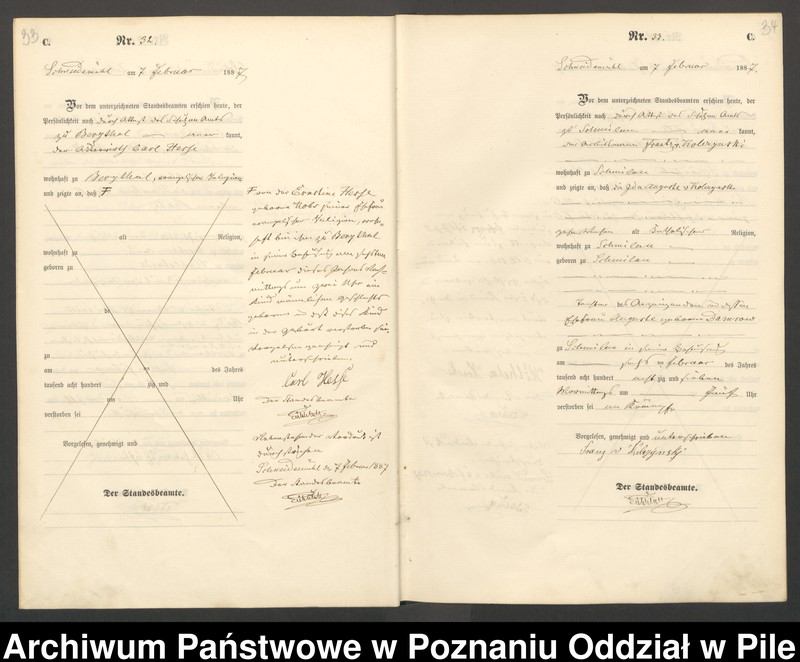 33
C.
Nr. 32.
Schneidemühl am 7 Februar 1887.
Vor dem unterzeichneten Standesbeamten erschien heute, der
Persönlichkeit nach durch Attest des Schulzen Amts
zu Bergthal kannt,
der Carl Hesse
wohnhaft zu Bergthal, evangelischer Religion
und zeigte an, daß F
alt Religion,
wohnhaft zu
geboren zu
de
zu
am des Jahres
tausend acht hundert zig und
um Uhr
verstorben sei
Vorgelesen, genehmigt und
Der Standesbeamte.
F von der Hesse
geborene seiner Ehefrau
evangelischer Religion, wohn-
haft bei ihm zu Bergthal
in seiner Behausung am sechsten
Februar dieses Jahres Nach-
mittags um zwei Uhr ein
Kind männlichen Geschlechts
geboren und daß dieses Kind
in der Geburt verstorben sei.
Vorgelesen genehmigt und
unterschrieben.
Carl Hesse
Der Standesbeamte
Nebenstehender Vordruck ist
durchstrichen
Schneidemühl den 7 Februar 1887
Der Standesbeamte
34
Nr. 33.
C.
Schneidemühl am 7 Februar 1887.
Vor dem unterzeichneten Standesbeamten erschien heute, der
Persönlichkeit nach durch Attest des Schulzen Amts
zu Schmilau kannt,
der Arbeitsmann
wohnhaft zu Schmilau
und zeigte an, daß die Ida Auguste v
alt katholischer Religion,
wohnhaft zu Schmilau
geboren zu Schmilau
Tochter des Anzeigenden und dessen
Ehefrau Auguste geborene
zu Schmilau in seiner Behausung
am sechsten Februar des Jahres
tausend acht hundert achtzig und sieben
Vormittags um fünf Uhr
verstorben sei an Krämpfe
Vorgelesen, genehmigt und unterschrieben
Franz v
Der Standesbeamte.
Archiwum Państwowe w Poznaniu Oddział w Pile